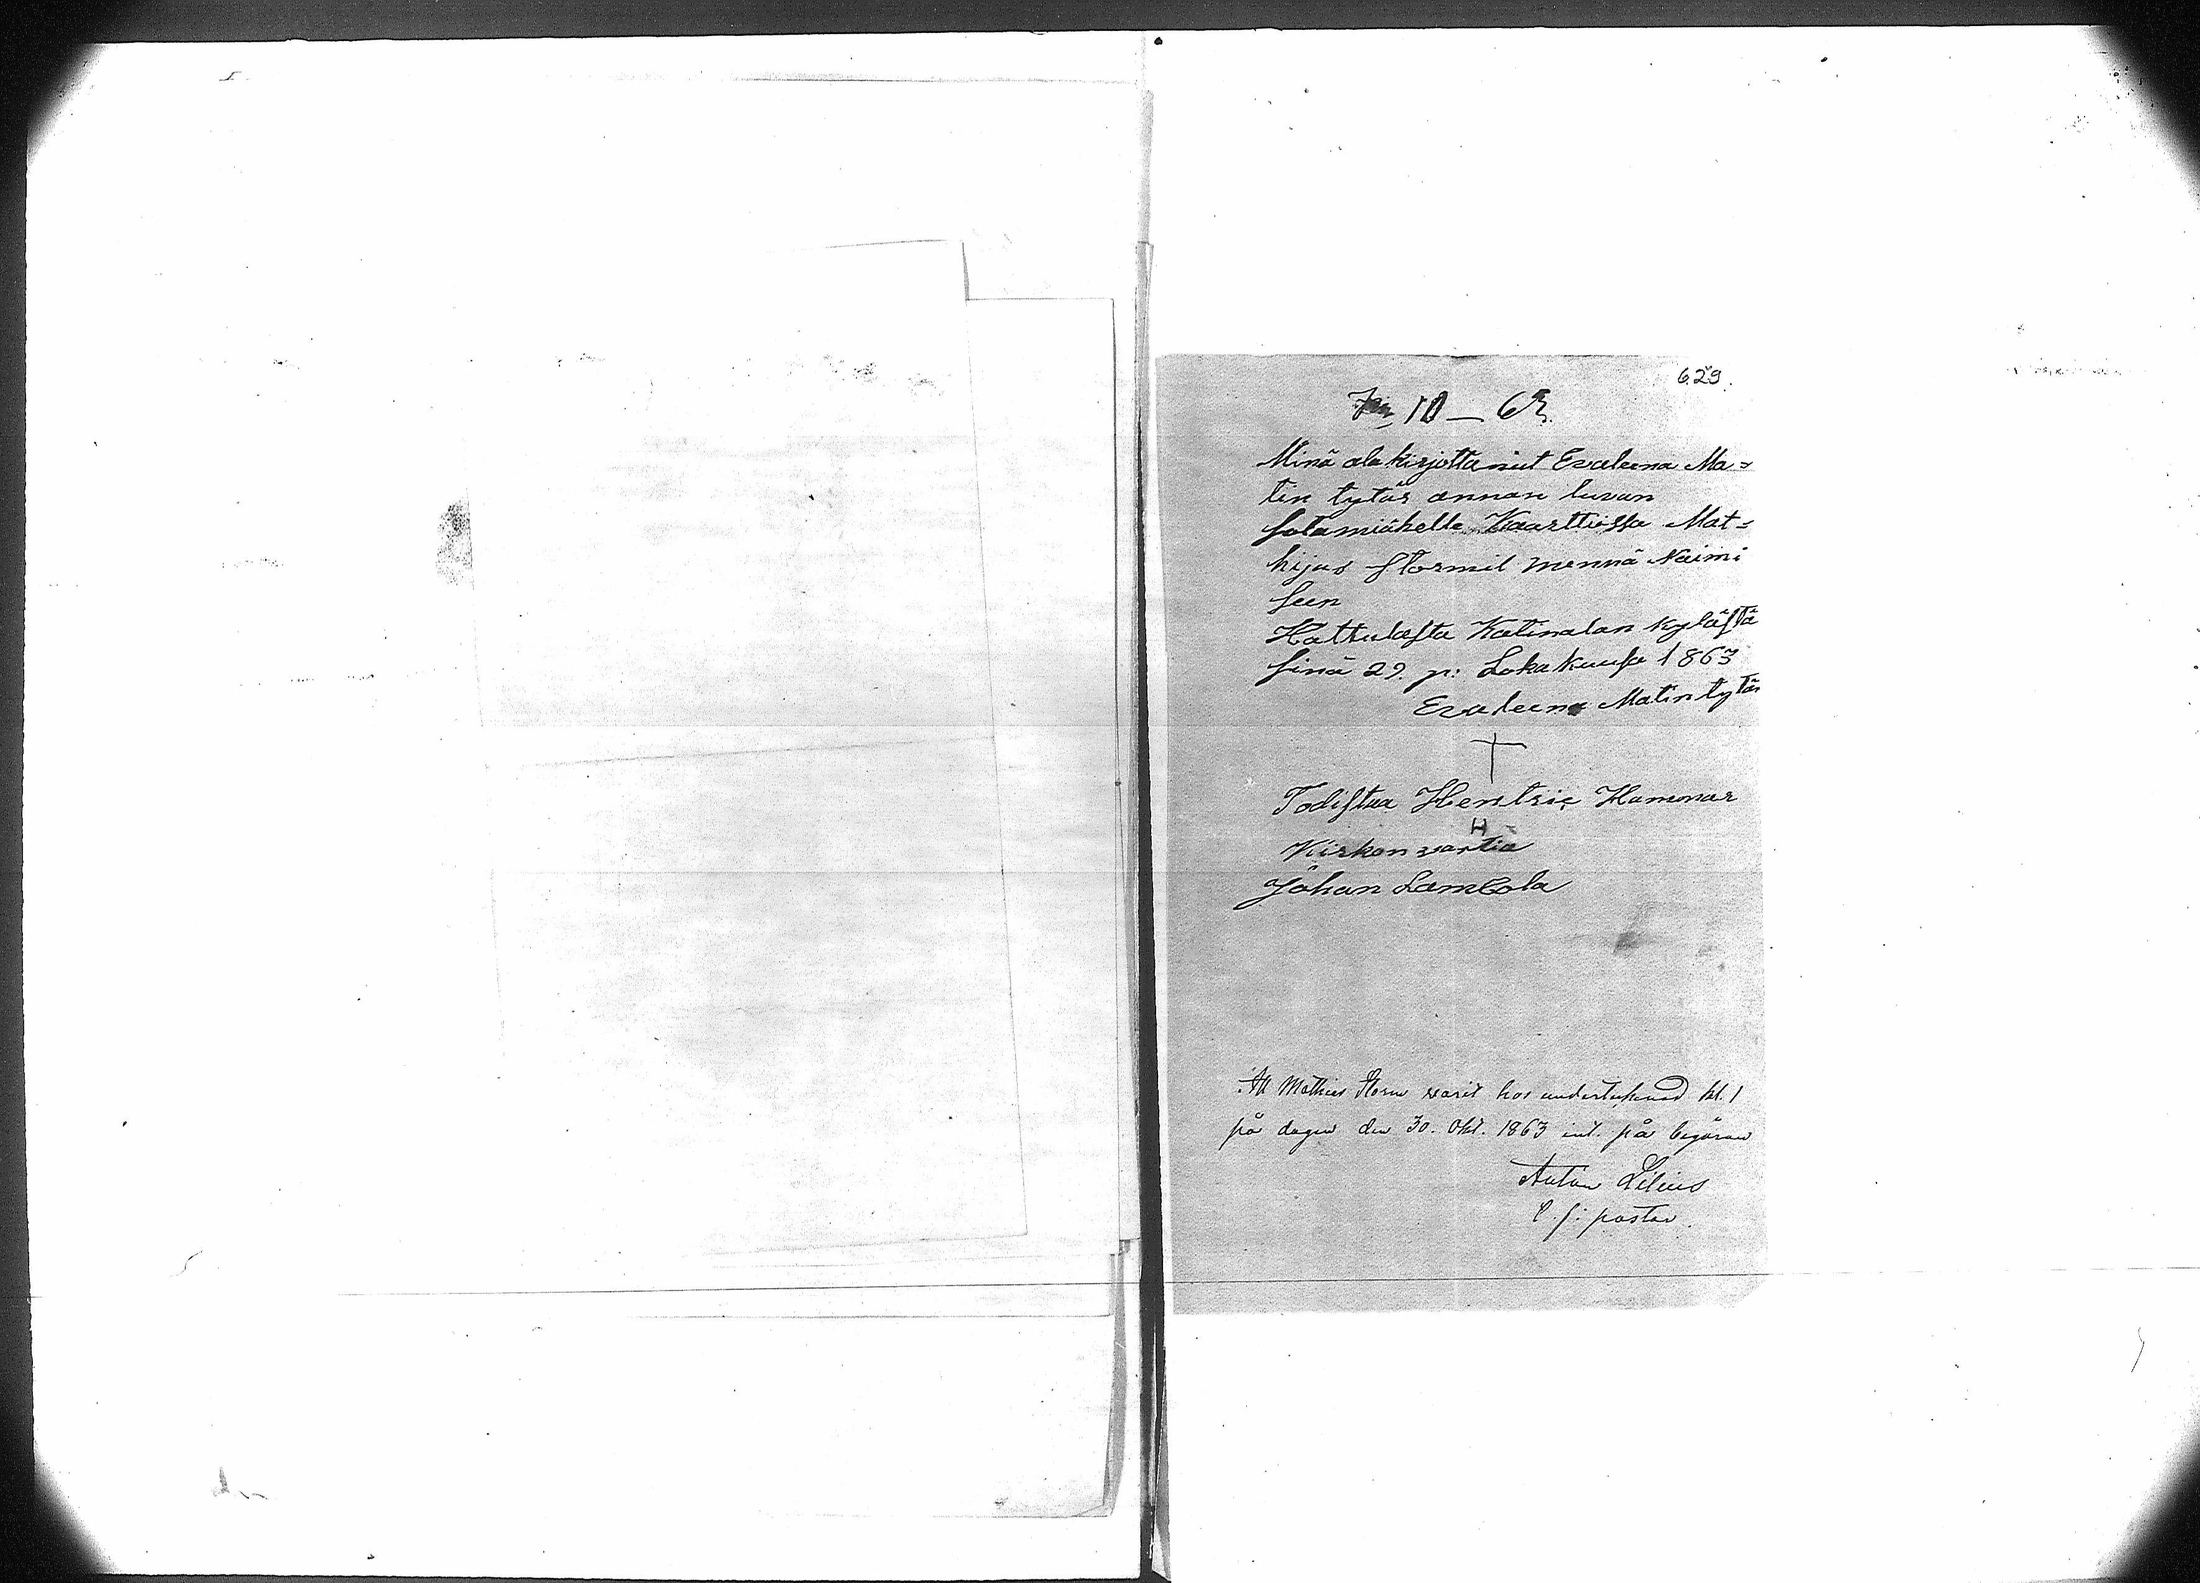 629.
10 – 63.
Minä ala kirjottanut Evaleena Ma=
tin tytär annan luvan
sotamiähelle Kaarttissa Mat=
hijus Stormil mennä Naimi
seen
Hattulasta Katinalan kylästä
sinä 29. p: Lokakuusa 1863
Evaleena Matintytär
Todistaa Hentric Hammar
H
Kirkon vartia
Johan Lambola
Att Mathias Storm varit hos undertecknad kl. 1
på dagen den 30. Okt. 1863 int. på begäran
Anton Lilius
e. f: pastor.